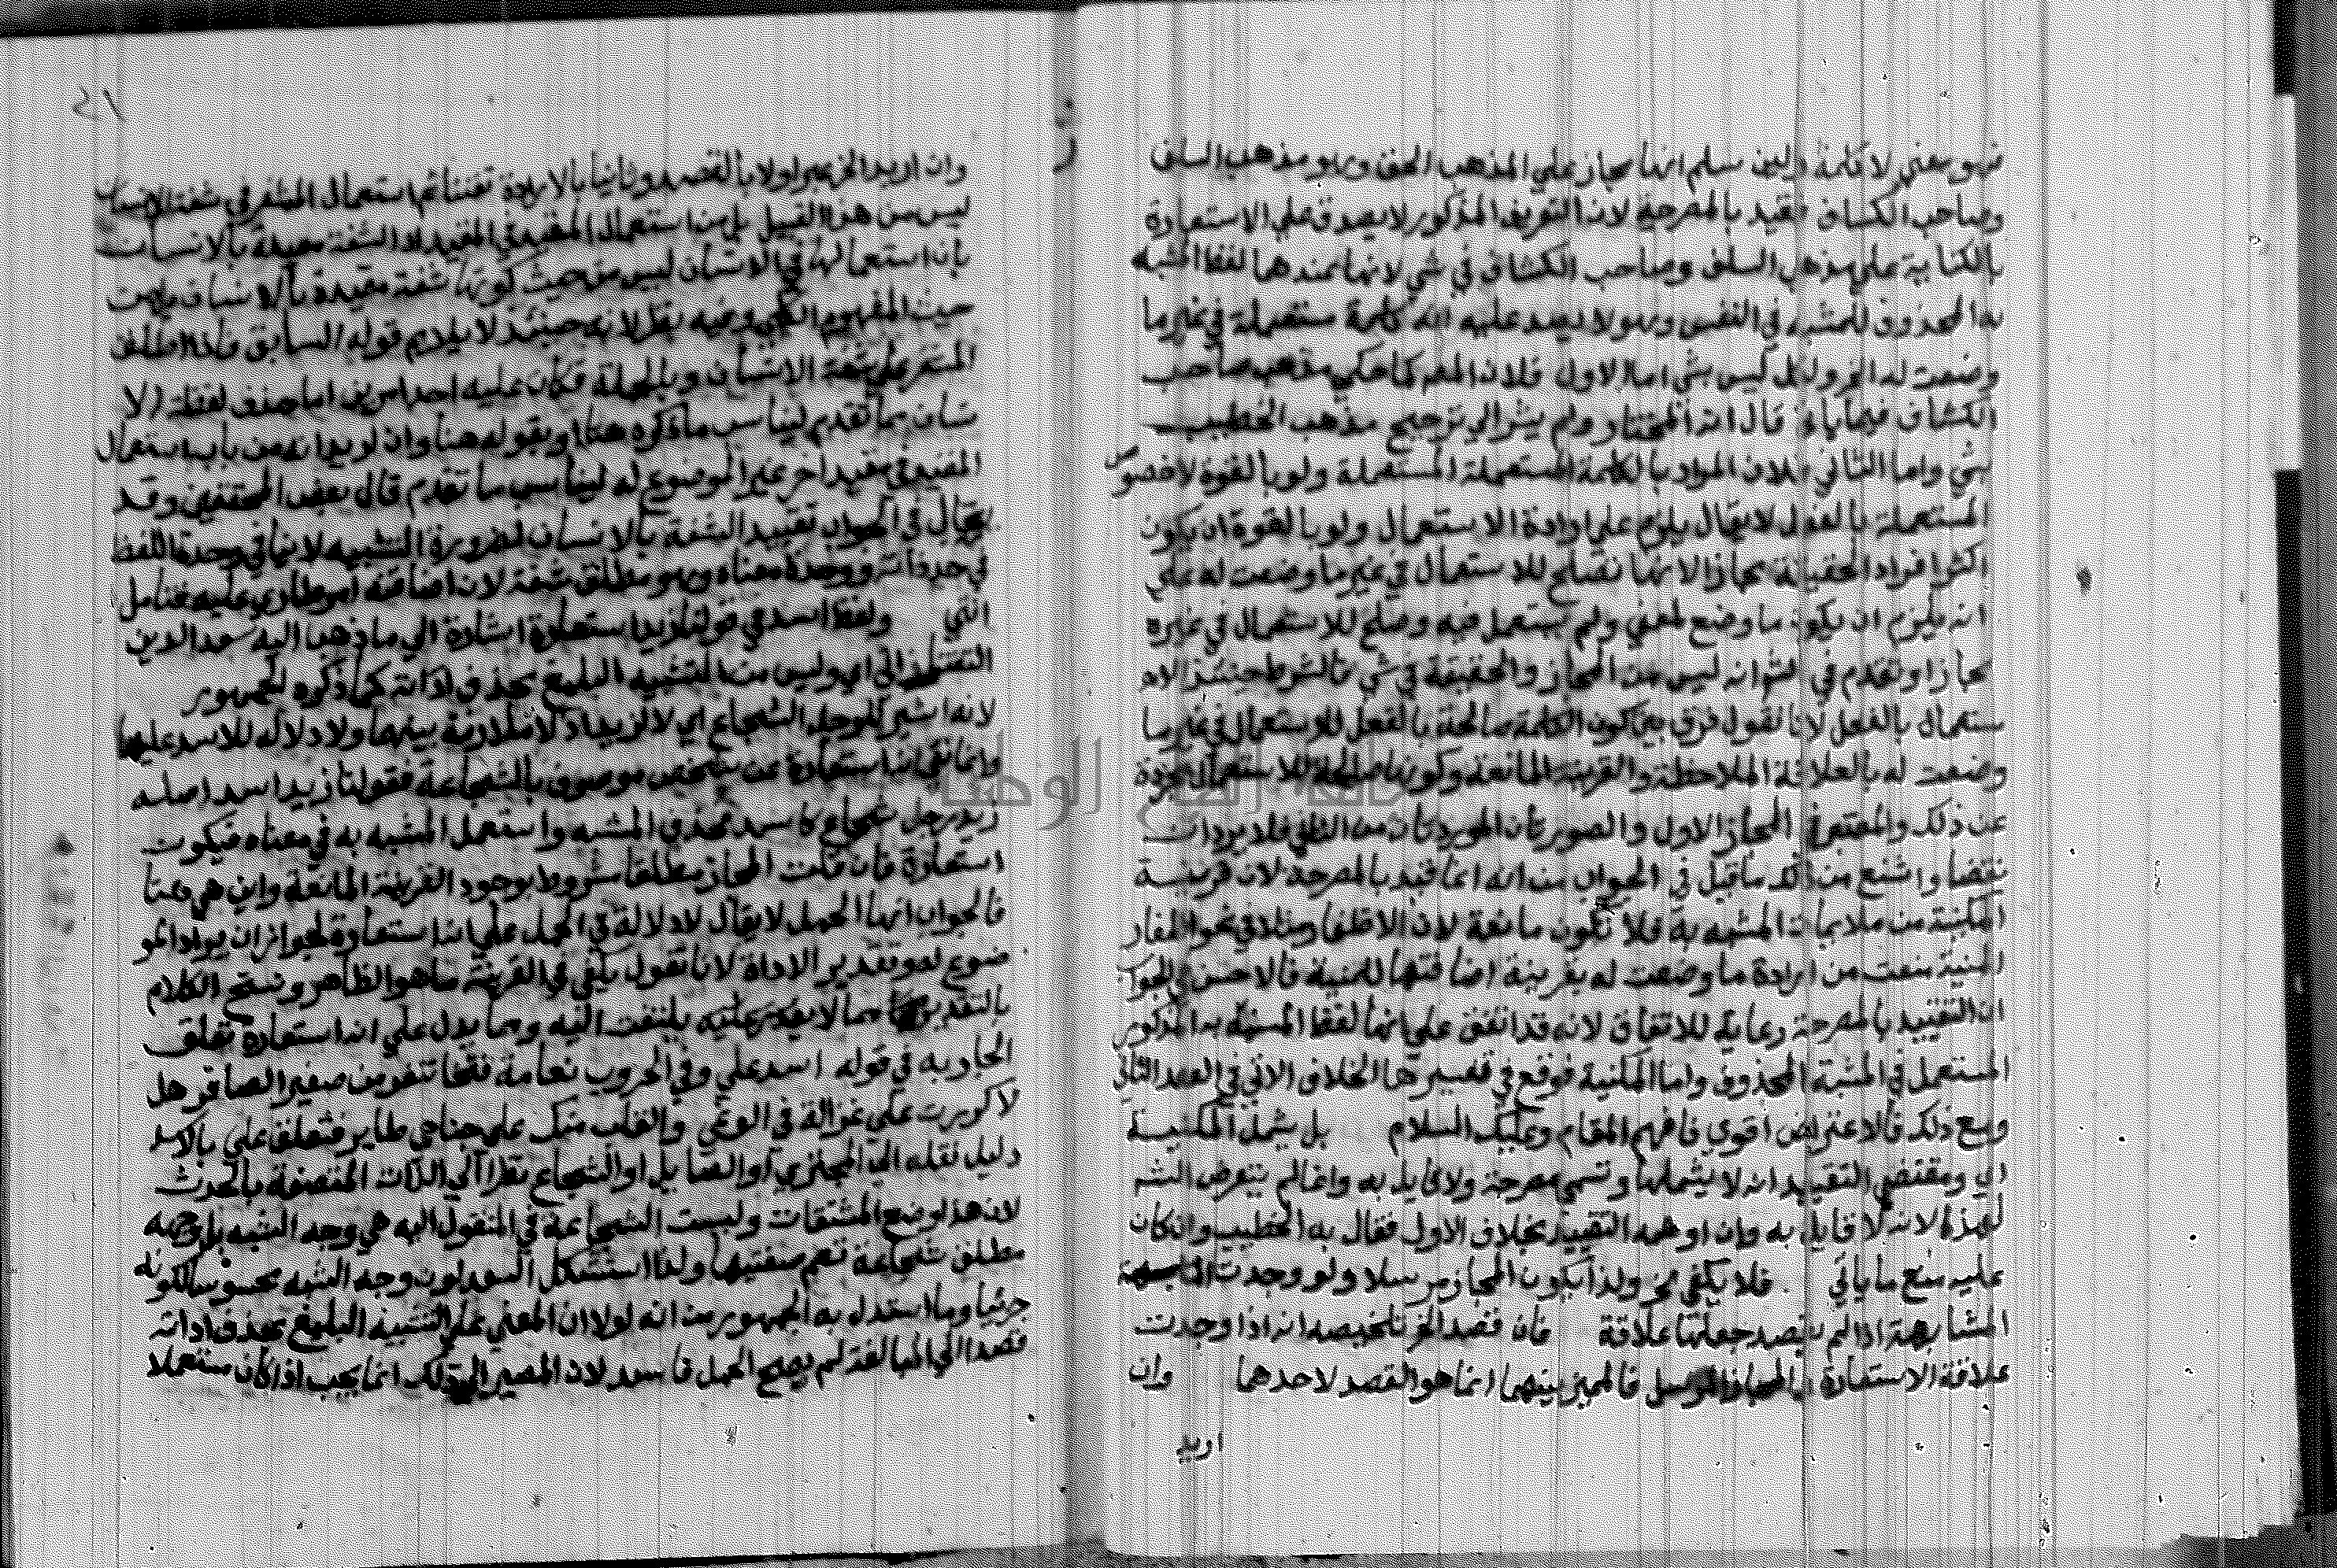 فهو معني لا كلمة ولين سلم انها مجاز علي المذهب الحق وهو مذهب السلف
وصاحب الكشاف فقيد بالمصرحة لان التعريف المذكور لا يصدق علي الاستعارة
بالكناية علي مذهل السلف وصاحب الكشاف في شي لانها عندها لفظ المشبه
به المحذوف للمشبه في النفس وهو لا يصد عليه انه كلمة مستعملة في غير ما
وضعت له الخ وليس بشي اما الاول فلان المص كما حكي مذهب صاحب
الكشاف فيما ياءتي قال انه المختار ولم يشر الي ترجيح مذهب الخطيب
بشي واما الثاني فلان المراد بالكلمة المستعملة المستعملة ولو بالقوة لا خصوص
المستعملة بالفعل لا يقال يلزم علي ارادة الاستعمال ولو بالقوة ان يكون
اكثر افراد الحقيقة مجازا لانها تصلح للاستعمال في غير ما وضعت له علي
انه يلزم ان يكون ما وضع لمعني ولم يستعمل فيه وصلح للاستعمال في غيره
مجازا وتقدم في الشر انه ليس من المجاز والحقيقة في شي فالشرط حينئذ الا
ستعمال بالفعل لانا نقول فرق بين كون الكلمة صالحة بالفعل للاستعمال في غير ما
وضعت له بالعلاقة الملاحظة والقرينة المانعة وكونها صالحة للاستعمال مجردة
عن ذلك والمعتبر في المجاز الاول والصورتان الموردتان من الثاني فلا يردان
نقضا واشنع من ذلك ما قيل في الجواب من انه انما قيد بالمصرحة لان قرينة
المكنية من ملايمات المشبه به فلا تكون مانعة لان الاظفار مثلا في نحو اظفار
المنية منعت من ارادة ما وضعت له بقرينة اضافتها للمنية فالاحسن في الجواب
ان التقييد بالمصرحة رعاية للاتفاق لانه قد اتفق علي انها لفظ المشبه به المذكور
المستعمل في المشبة المحذوف واما المكنية فوقع في تفسيرها الخلاف الاتي في العقد الثاني
ومع ذلك فالاعتراض اقوي فافهم المقام وعليك السلام بل يشمل المكنية
اي ومقتضي التقييد انه لا يشملها وتسمي مصرحة ولا قايل به وانما لم يتعرض الشر
لهذا لانه لا قايل به وان اوهمه التقييد بخلاف الاول فقال به الخطيب وان كان
عليه منع ما ياتي فلا يكفي مخ ولذا يكون المجاز مرسلا ولو وجدت
المشابهة اذا لم يقصد جعلها علاقة فان قصد الخ تلخيصه انه اذا وجدت
علاقة الاستعارة والمجاز المرسل فالمميز بينهما انما هو القصد لاحدهما وان
اريد
٢١
وان اريد الخ عبر اولا بالقصد وثانيا بالارادة تفننا ثم استعمال المشفر في شفة الانسان
ليس من هذا القبيل بل من استعمال المقيد في المقيد اذ الشفة مقيدة بالانسان
بان استعمالها في الانسان ليس من حيث كونها شفة مقيدة بالانسان بل من
حيث المفهوم الكلي وفيه نظر لانه حينئذ لا يلايم قوله السابق فاذا اطلق
المشفر علي شفة الانسان وبالجملة فكان عليه احد امرين اما حذف لفظة الا
نسان مما تقدم ليناسب ما ذكره هنا او يقوله هنا وان اريد انه من باب استعمال
المقيد في مقيد اخر غير الموضوع له ليناسب ما تقدم قال بعض المحققين وقد
يقال في الجواب تقييد الشفة بالانسان لضرورة التشبيه لا ينافي وحدة اللفظ
في حد ذاته ووحدة معناه وهو مطلق شفة لان اضافته امر طاري عليه فتامل
انتهي ولفظ اسد في قولنا زيد استعارة اشارة الي ما ذهب اليه سعد الدين
التفتازاني اي وليس من التشبيه البليغ بحذف اداته كما ذكره الجمهور
لانه اشير للرجل الشجاع اي لا لزيد اذ لا ملازمة بينهما ولا دلالة للاسد عليها
وانما في استعارة عن شخص موصوف بالشجاعة فقولنا زيد اسد اصله
زيد رجل شجاع كاسد فحذف المشبه واستعمل المشبه به في معناه فيكون
استعارة فان قلت المجاز مطلقا مشروط بوجود القرينة المانعة واين هي هنا
فالجواب انها الحمل لا يقال لا دلالة في الحمل علي انه استعارة لجواز ان يراد المو
ضوع له وتقدير الاداة لانا نقول يكفي في القرينة ما هو الظاهر ونصحح الكلام
بالتقدير مما لا يلتفت اليه ومما يدل علي انه استعارة تعلق
الجار به في قوله اسد علي وفي الحروب نعامة فتخا تنفر من صفير الصافر هل
لا كررت علي غزالة في الوغي والقلب منك علي جناحي طاير فتعلق علي بالاسد
دليل نقله الي المجتري او الصايل او الشجاع نظرا الي الذات المتصفة بالحدث
لان هذا وضع المشتقات وليست الشجاعة في المنقول اليه هي وجه الشبه بل وجهه
مطلق شجاعة تعم صفتيها ولذا استشكل السعد لون وجه الشبه محسوسا لكونه
جزئيا وما استدل به الجمهور من انه لولا ان المعني علي التشبيه البليغ بحذف اداته
قصدا الي المبالغة لم يصح الحمل فاسد لان المصير الي ذلك انما يجب اذا كان مستعملا